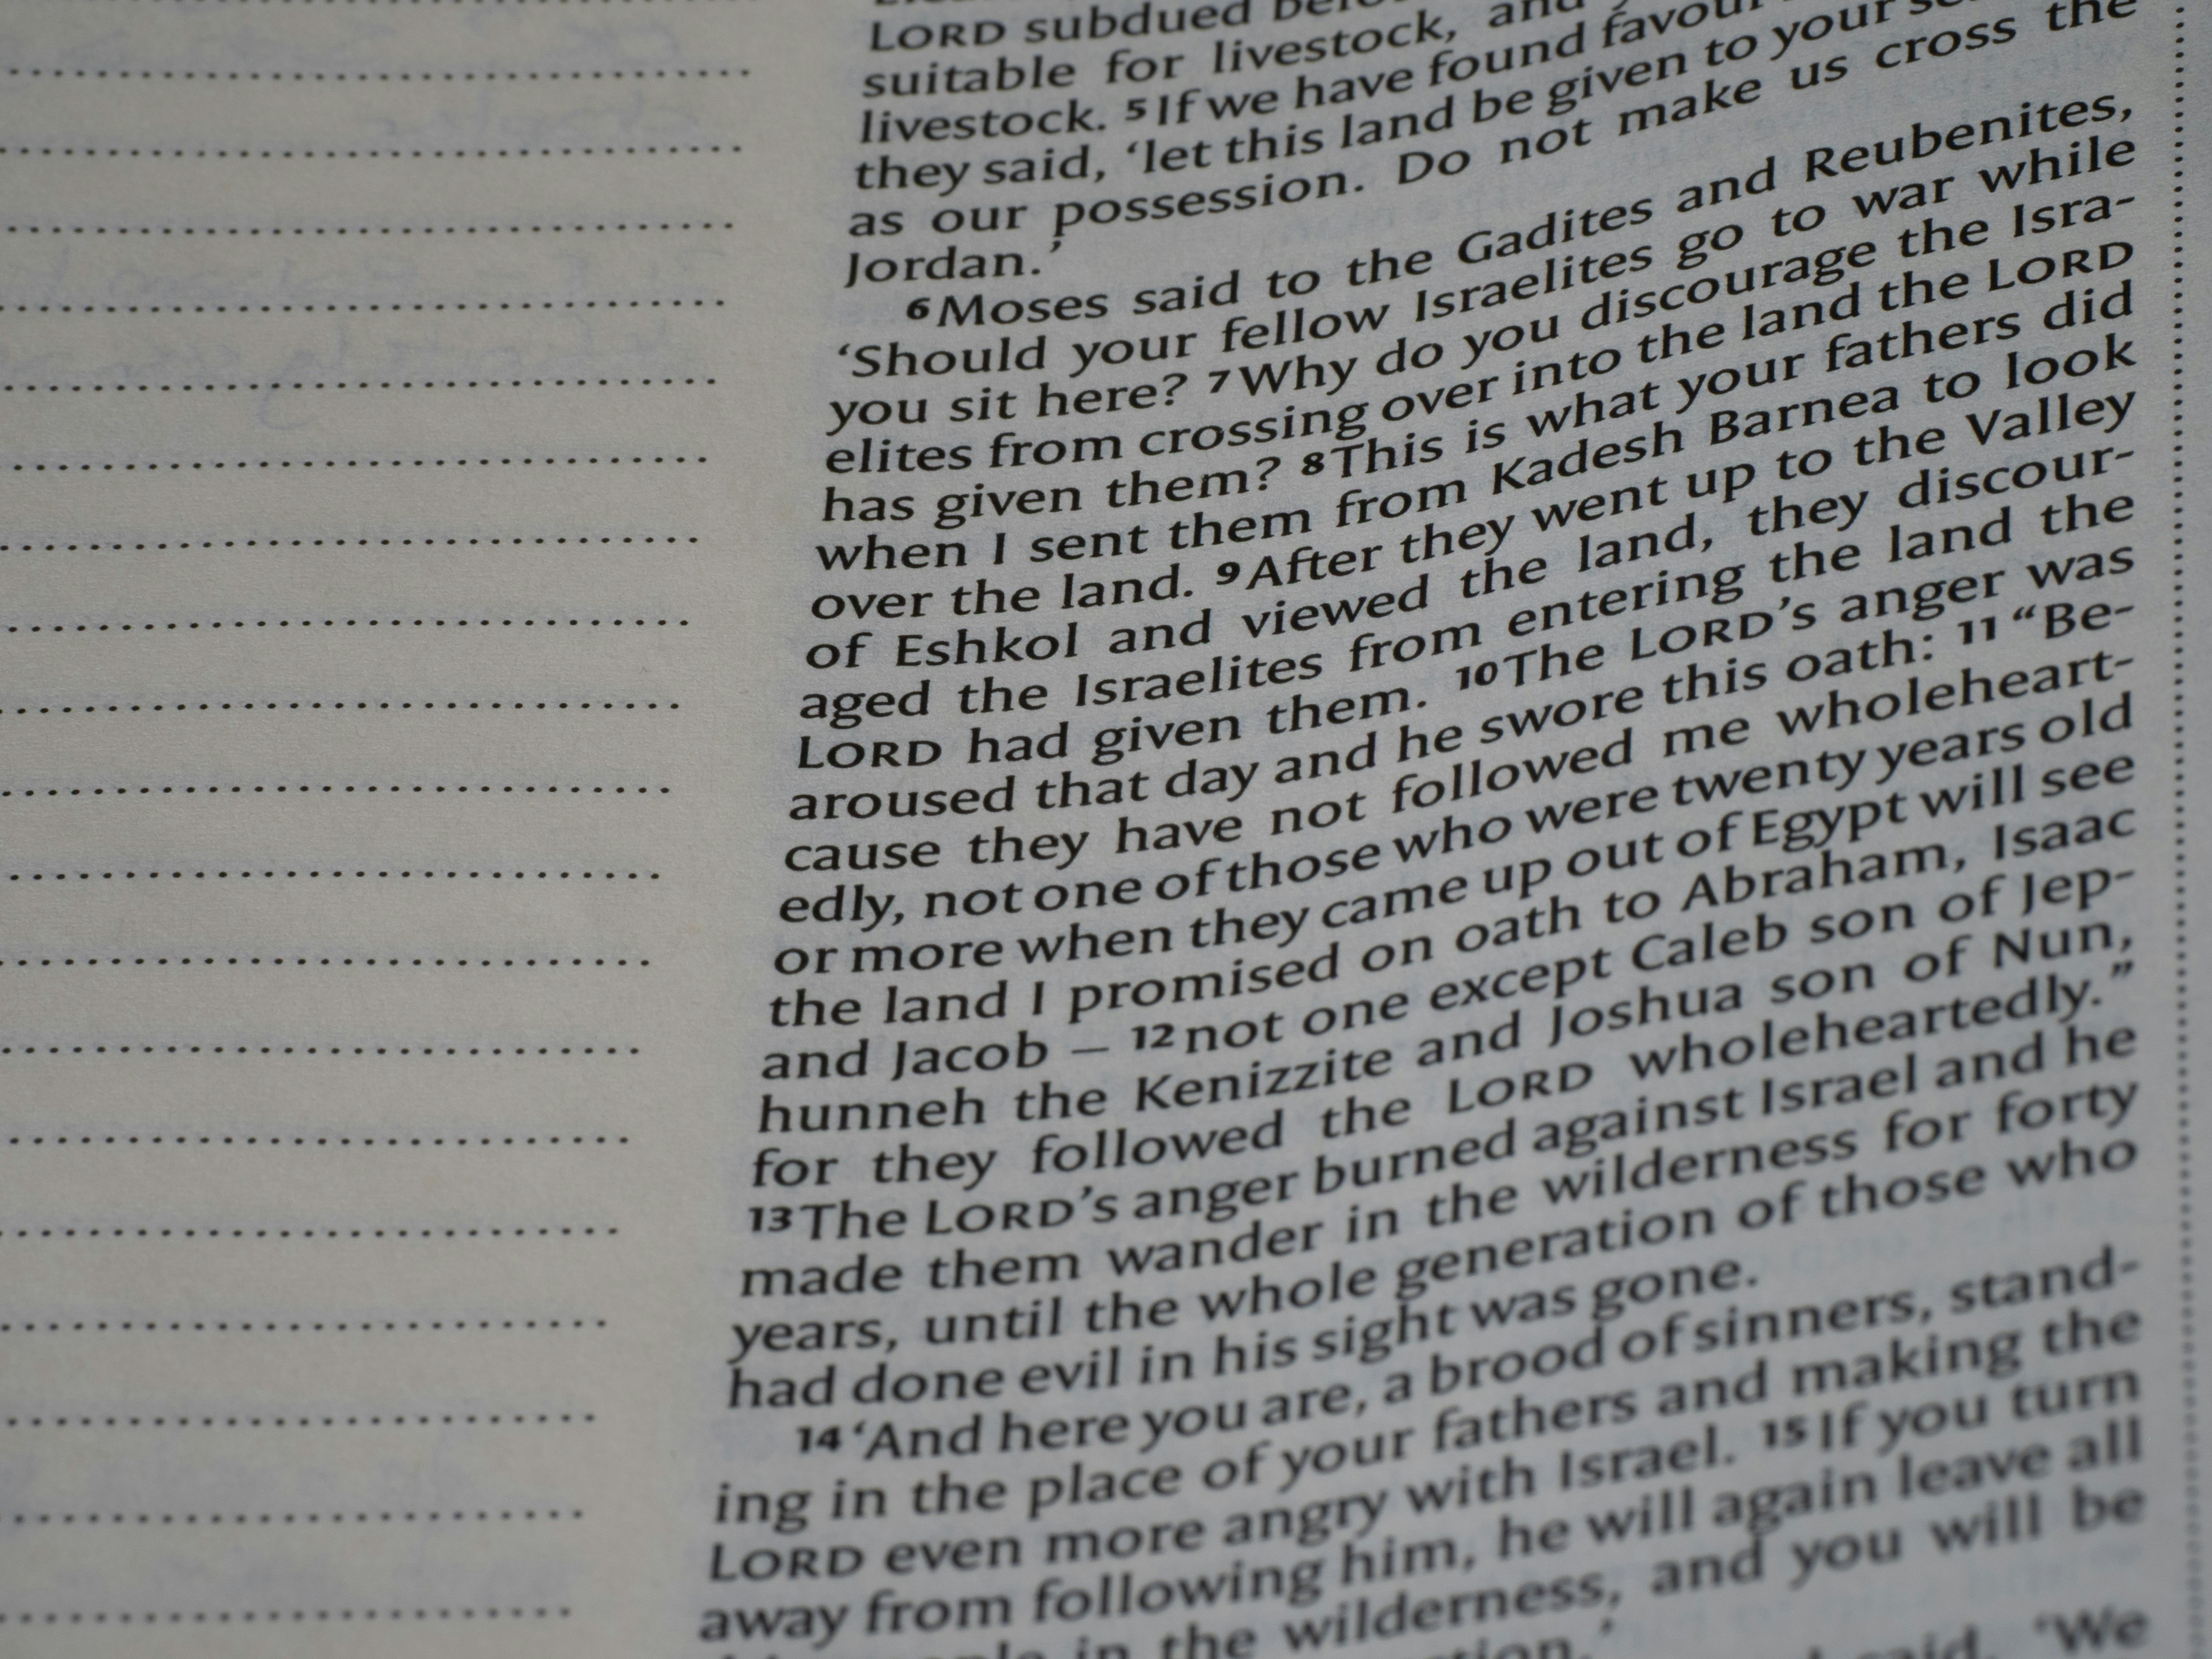 LORD subdued
suitable for livestock, and
livestock. 5 If we have found favour
they said, ‘let this land be given to your
as our possession. Do not make us cross the
Jordan.’
6 Moses said to the Gadites and Reubenites,
‘Should your fellow Israelites go to war while
you sit here? 7 Why do you discourage the Isra-
elites from crossing over into the land the LORD
has given them? 8 This is what your fathers did
when I sent them from Kadesh Barnea to look
over the land. 9 After they went up to the Valley
of Eshkol and viewed the land, they discour-
aged the Israelites from entering the land the
LORD had given them. 10 The LORD’s anger was
aroused that day and he swore this oath: 11 “Be-
cause they have not followed me wholeheart-
edly, not one of those who were twenty years old
or more when they came up out of Egypt will see
the land I promised on oath to Abraham, Isaac
and Jacob – 12 not one except Caleb son of Jep-
hunneh the Kenizzite and Joshua son of Nun,
for they followed the LORD wholeheartedly.”
13 The LORD’s anger burned against Israel and he
made them wander in the wilderness for forty
years, until the whole generation of those who
had done evil in his sight was gone.
14 ‘And here you are, a brood of sinners, stand-
ing in the place of your fathers and making the
LORD even more angry with Israel. 15 If you turn
away from following him, he will again leave all
people in the wilderness, and you will be
said, ‘We